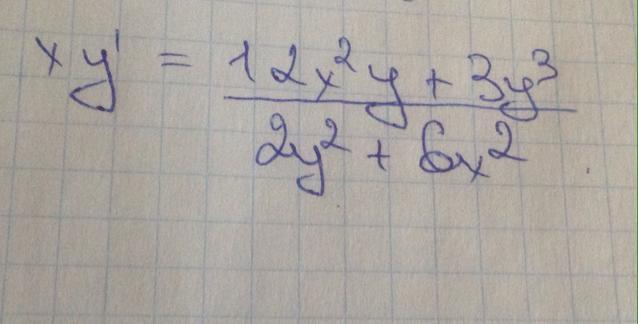 xy' = \frac{12x^2y + 3y^3}{2y^2 + 6x^2}